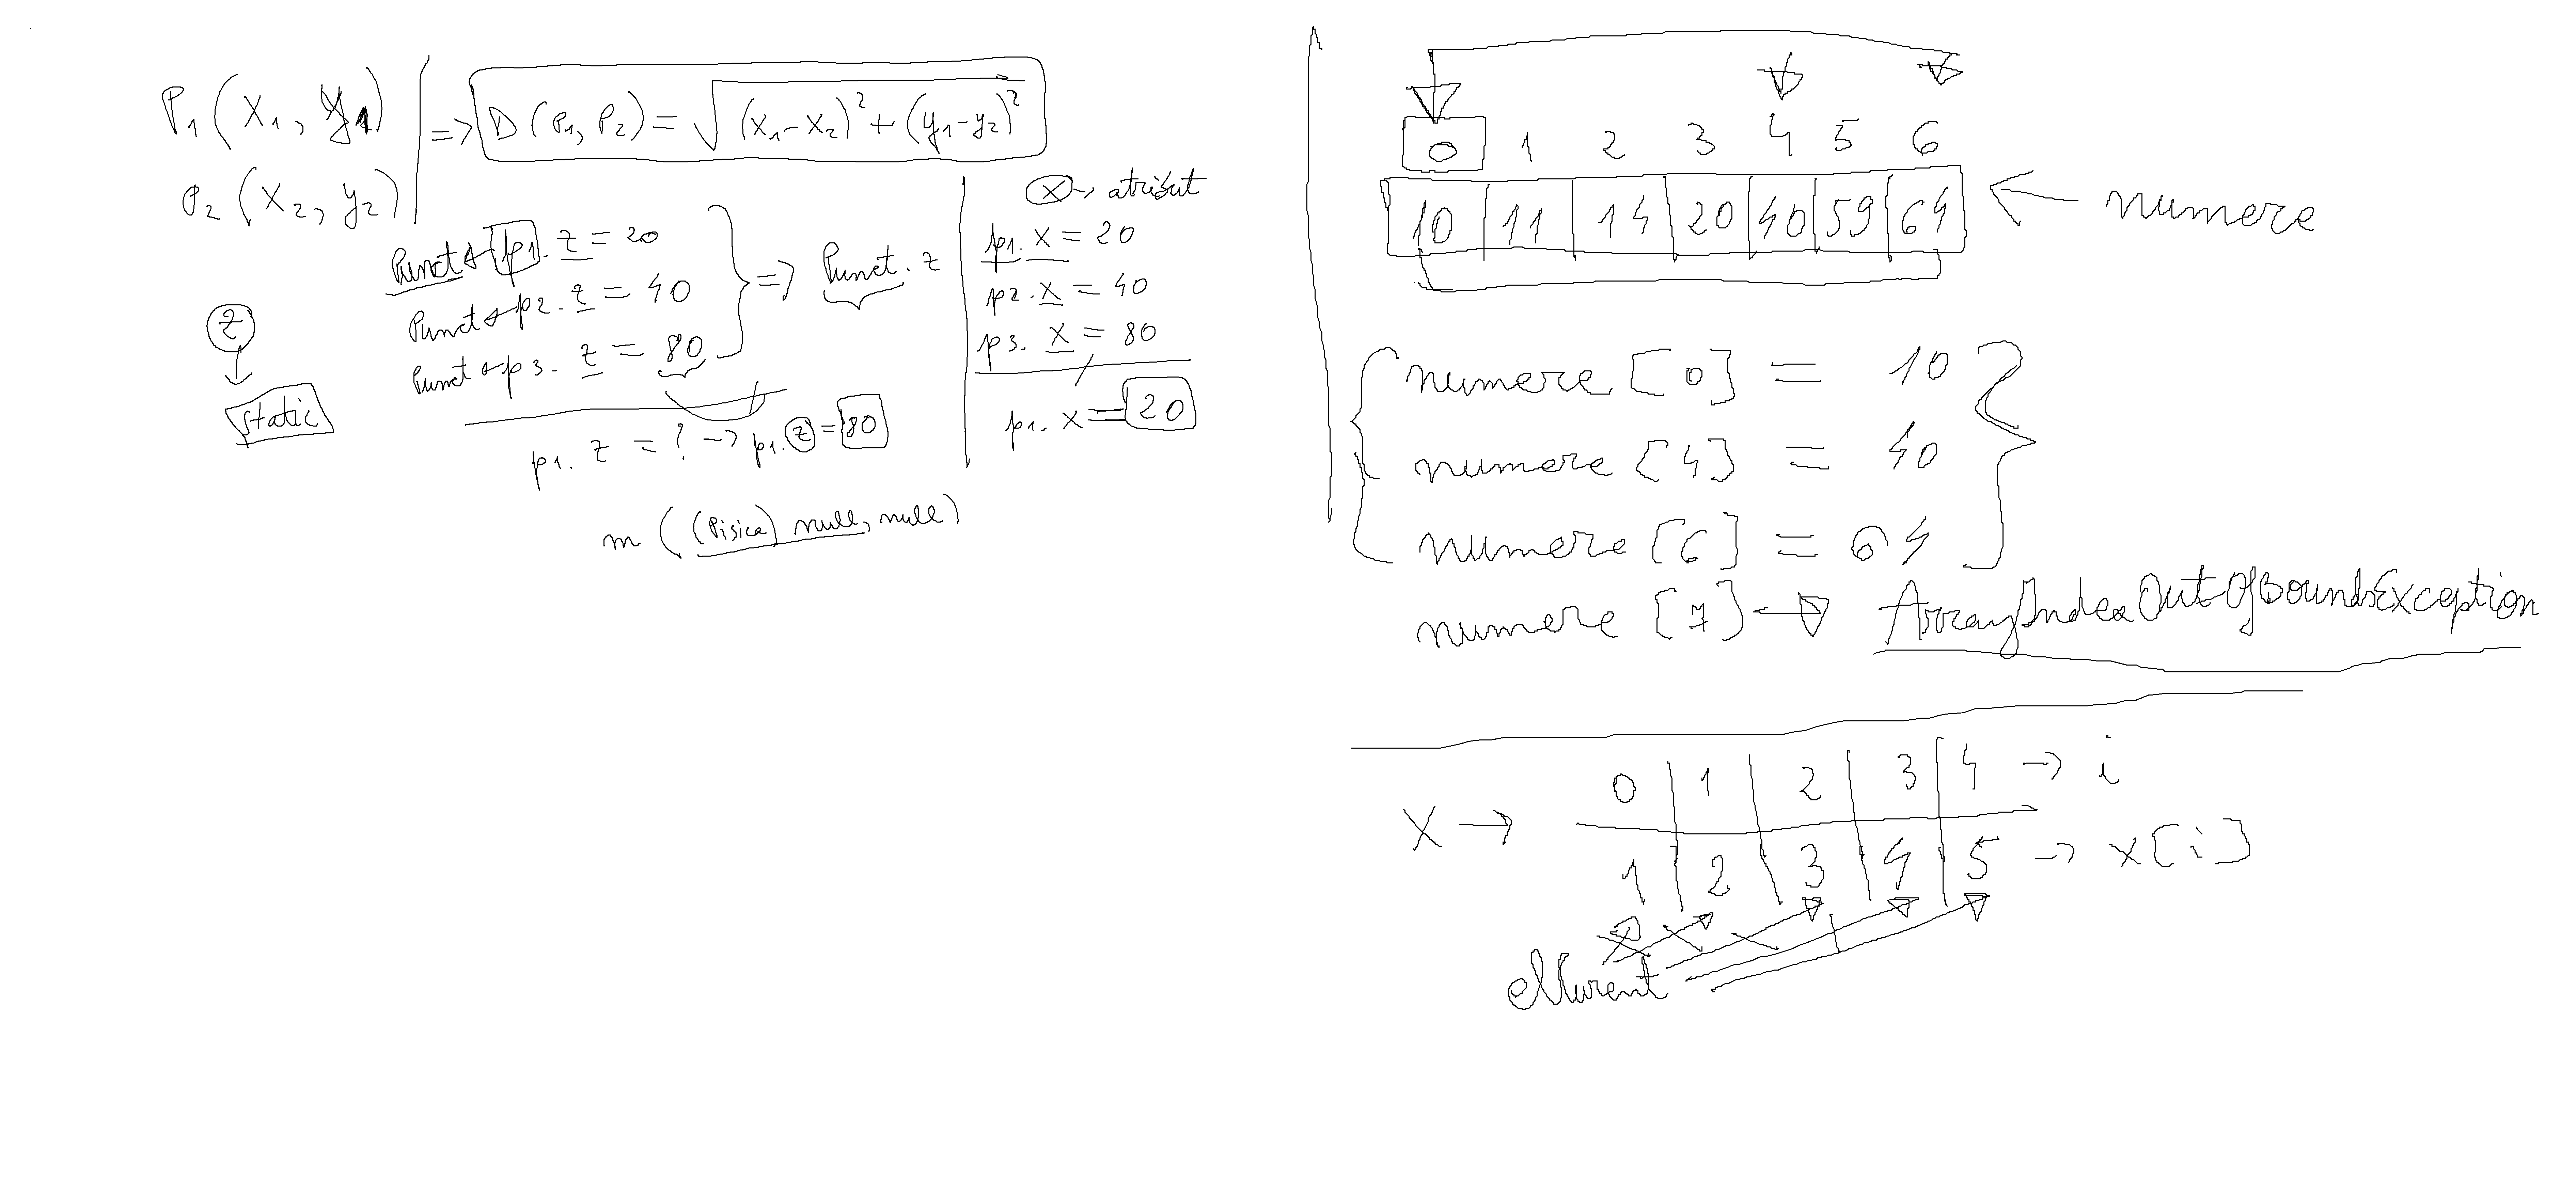 P₁(x₁, y₁)
P₂(x₂, y₂)
=> D(P₁, P₂) = √(x₁-x₂)² + (y₁-y₂)²
z
static
Punct p1. z = 20
Punct p2. z = 40
Punct p3. z = 80
=> Punct. z
p1. z = ? -> p1. z = 80
x -> atribut
p1. x = 20
p2. x = 40
p3. x = 80
p1. x = 20
m ((Pisica) null, null)
0 1 2 3 4 5 6
10 11 14 20 40 59 64 ← numere
numere [0] = 10
numere [4] = 40
numere [6] = 64
numere [7] -> ArrayIndexOutOfBoundsException
0 1 2 3 4 -> i
x ->
1 2 3 4 5 -> x[i]